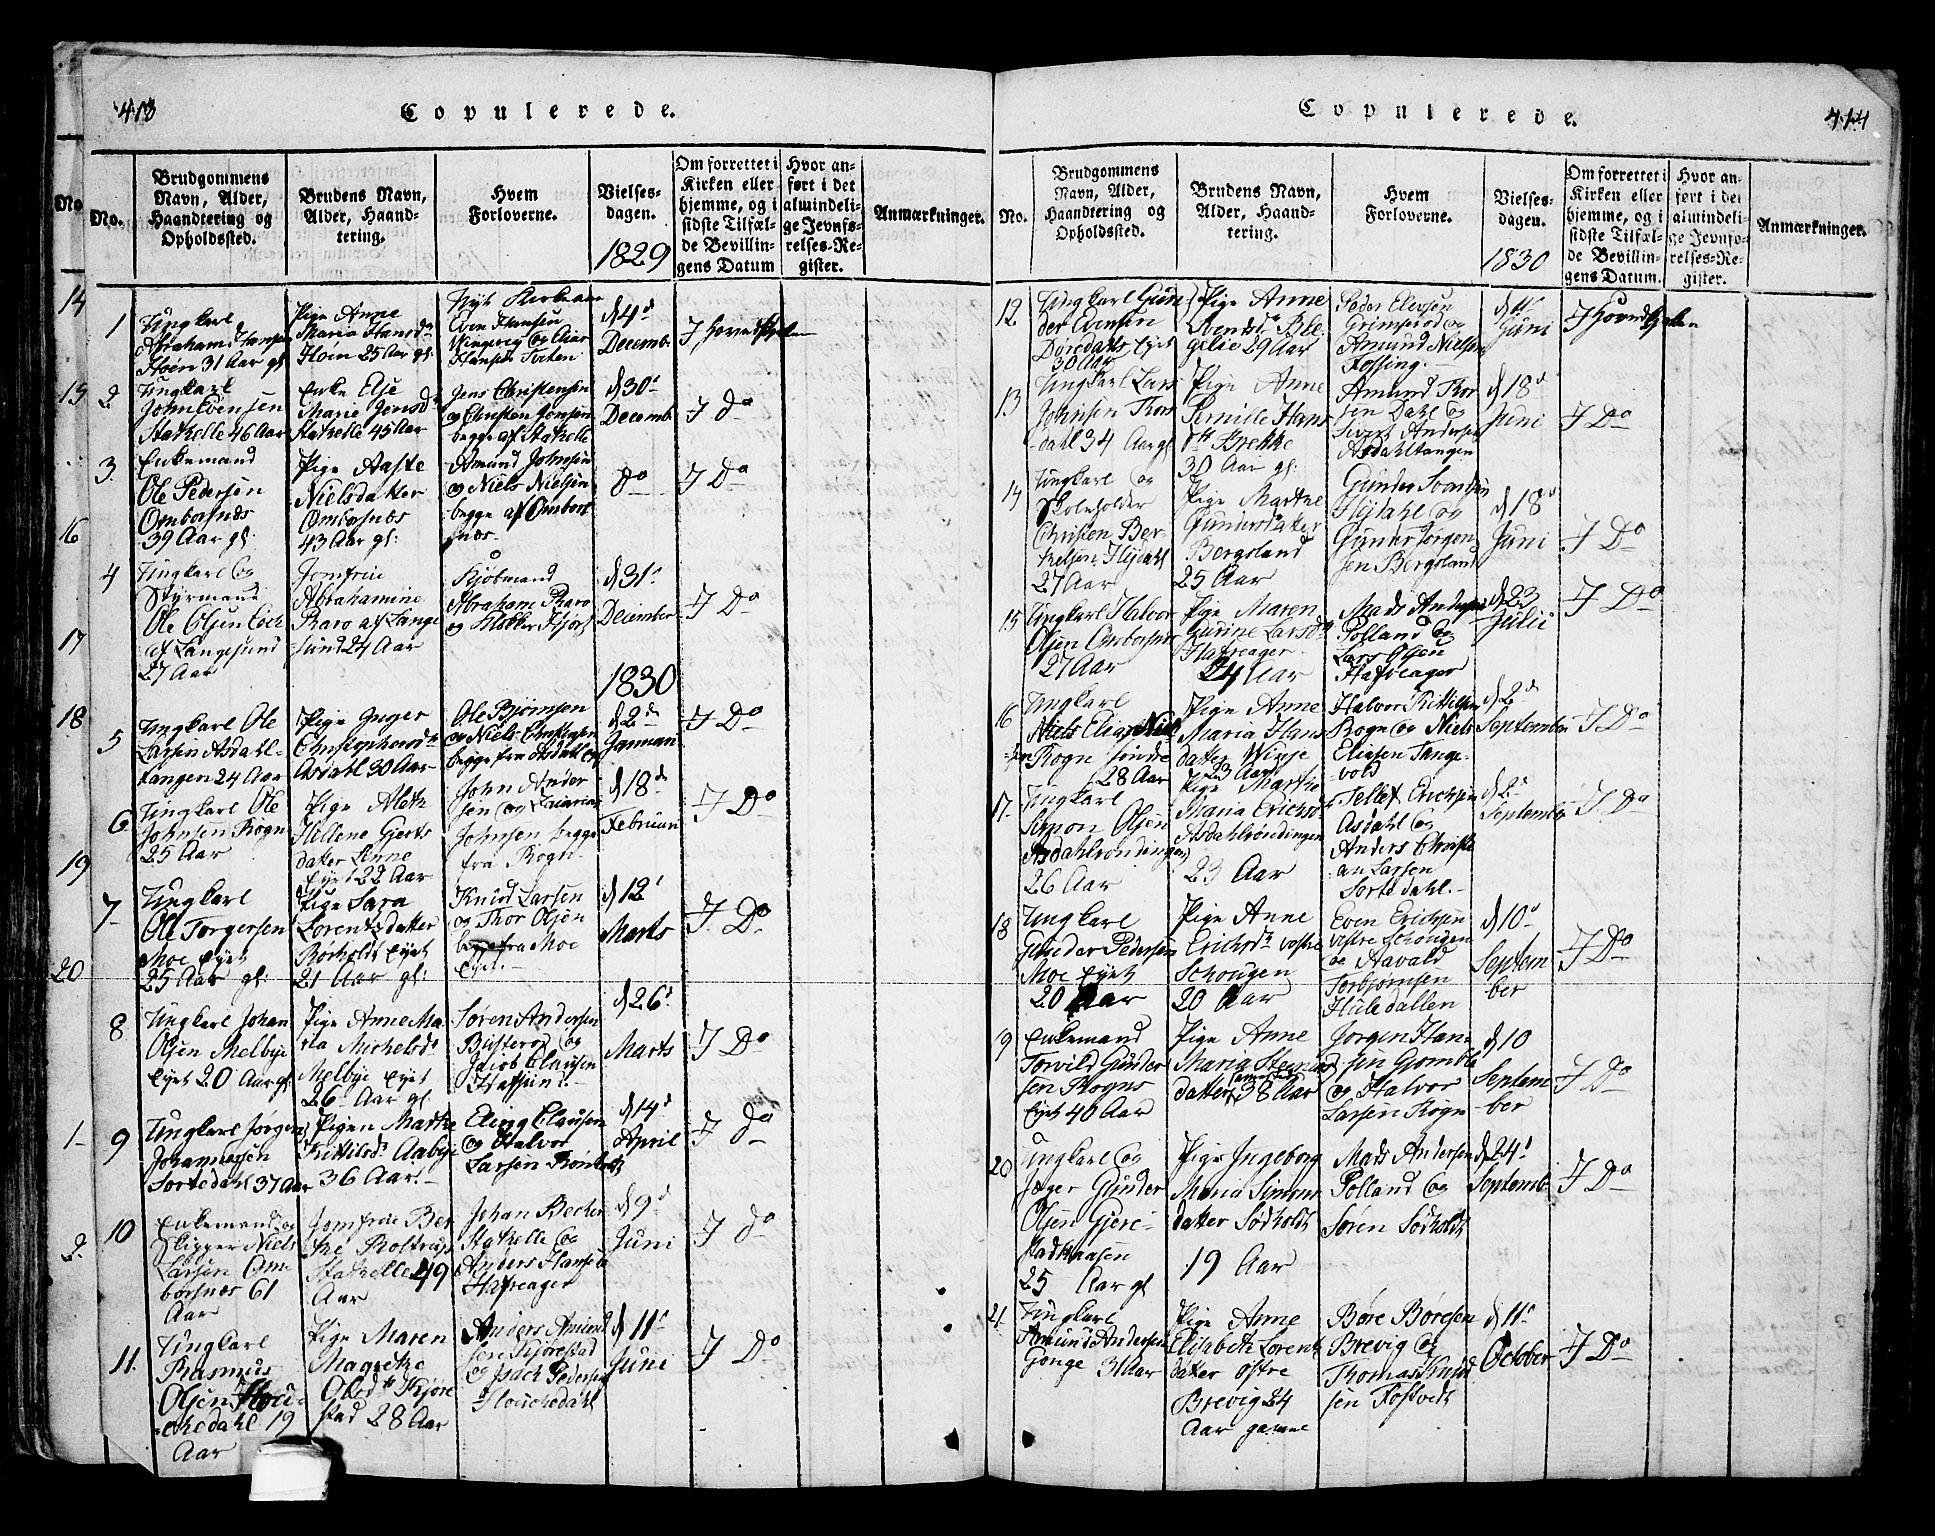 413
Copulerede.
No.
Brudgommens
Navn, Alder,
Haandtering og
Opholdssted.
Brudens Navn,
Alder, Haand-
tering.
Hvem
Forloverne.
Vielses-
dagen.
1829
Om forrettet i
Kirken eller
hjemme, og i
sidste Tilfæl-
de Bevillin-
gens Datum
Hvor an-
ført i det
almindeli-
ge Jevnfø-
relses-Re-
gister.
Anmærkninger.
1
Ungkarl
Abraham Hansen
Hoen 31 Aar gl
Pige Anne
Maria Hansdr
Hoen 25 Aar gl:
Even Hansen
Hansen Tveten
d 4d
Decemb:
I hovedkirken
2.
Ungkarl
John Evensen
Stathelle 46 Aar
Enke Else
Marie Jensdr
Stathelle 45 Aar
Jens Christensen
og Christen Jensen
begge af Stathelle
d 30t
Decemb:
I do
3.
Enkemand
Ole Pedersen
Omborsnæs
39 Aar gl:
Pige Aaste
Nielsdatter
Ombosnæs
43 Aar gl:
Amund Johnsen
og Niels Nielsen
begge af Ombors
næs
Do
I Do
4
Ungkarl og
Styrmand
Ole Olsen Eech
af Langesund
27 Aar
Jomfrue
Abrahamine
Raro af Lange
sund 24 Aar
Kjøbmand
Abraham Raro
og Klokker Kjørs
d 31t
December
I Do
1830
5
Ungkarl Ole
Larsen Asdahl-
tangen 24 Aar
Pige Inger
Christophersdr
Asdahl 30 Aar
Ole Bjørnsen
og Niels Christensen
begge fra Asdahl
d 2d
Januari
I Do
6
Ungkarl Ole
Johnsen Rogn
25 Aar
Pige Aleth
Hellene Gierts
datter Linne
Eyet 22 Aar
John Ander
sen og Zacarias
Johnsen begge
fra Rogn
d 18de
Februari
I Do
7
Ungkarl
Ole Torgersen
Moe Eyet
25 Aar gl:
Pige Sara
Lorentzdatter
Rørholdt Eyet
21 Aar gl:
Knud Larsen
og Thor Olsen
begge fra Moe
Eyet
d 12t
Marts
I Do
8
Ungkarl Johan
Olsen Melbye
Eyet 20 Aar gl
Pige Anne Ma
ria Michelsdr
Melbye Eyet
26 Aar gl
Søren Andersen
Busterød og
Jacob Clausen
Hafsund
d 26t
Marts
I Do
9
Ungkarl Jørgen
Johannesen
Sortedahl 37 Aar
Pigen Marthe
Kittilsdr Aabye
36 Aar
Eling Clausen
og Halvor
Larsen
d 14d
April
I do
10
Enkemand og
Skipper Niels
Larsen Om-
borsnæs 61
Aar
Jomfrue Ber
the Roltrup
Stathelle 49
Aar
Johan Becker
Stathelle og
Anders Hansen
Hafreager
d 9d
Juni
I do
11.
Ungkarl
Rasmus
Olsen
19
Aar
Pige Maren
Magrethe
Olsdr Kjøre
stad 28 Aar
Anders Amund
sen Kjørestad
og Isach Pedersen
d 11t
Juni
I Do
14
15
16
17
18
19
20
1
2.
Copulerede.
414
No.
Brudgommens
Navn, Alder,
Haandtering og
Opholdssted.
Brudens Navn,
Alder, Haand-
tering.
Hvem
Forloverne.
Vielses-
dagen.
1830
Om forrettet i
Kirken eller
hjemme, og i
sidste Tilfæl-
de Bevillin-
gens Datum.
Hvor an-
ført i det
almindeli-
ge Jevnfø-
relses-Re-
gister.
Anmærkninger.
12
Ungkarl Gun
der Evensen
Dørdals Eyet
30 Aar
Pige Anne
29 Aar
Peder Elevsen
Grimserød og
Amund Nielsen
Fossing
d 11t
Juni
I hovedkirken
13
Ungkarl Lars
Johnsen Thors
dahl 34 Aar gl
Pige Anne
Pernille Hans
dtr Brekke
30 Aar gl:
Amund Thor
sen Dahl og
Sivert Andersen
Asdahltangen
d 18d
Juni
I Do
14
Ungkarl og
Skoleholder
Christen Ber-
thelsen Hydahl
27 Aar
Pige Marthe
Gundersdatter
Bergsland
25 Aar
Gunder Svendsen
Hydahl og
Gunder Jørgen
sen Bergsland
d 18d
Juni
I Do
15
Ungkarl Halvor
Olsen Ombosnæs
27 Aar
Pige Maren
Gurine Larsdr
Hafreager
24 Aar
Mads Andersen
Polland og
Lars Olsen
Hafreager
d 23
Julii
I Do
16
Ungkarl
Niels Elias Niel
sen Rogn søndre
28 Aar
Pige Anne
Maria Hans
datter Winje
23 Aar
Halvor Kittilsen
Rogn og Niels
Eliasen Tange-
vold
d 2d
September
I Do
17
Ungkarl
Simon Olsen
Asdahlrøndingen
26 Aar
Pige Marthe
Maria Erichsdr
Asdahlrøndingen
23 Aar
Tellef Erichsen
Asdahl og
Anders Christi
an Larsen
Sortedahl.
d 2d
Septemb
I Do
18
Ungkarl
Gunder Pedersen
Moe Eyet
20 Aar
Pige Anne
Erichsdr vestre
Schougen
20 Aar
Even Erichsen
vestre Schougen
og Aavald
Torbjørnsen
Huledallen
d 10d
Septem
ber
I Do
19
Enkemand
Torvild Gunder
sen Rogns
Eyet 40 Aar
Pige Anne
Maria
datter 38 Aar
Jørgen Han
sen Gjømble
og Halvor
Larsen Rogn
d 10
Septem
ber
I Do
20
Ungkarl og
Jæger Gunder
Olsen Gjere-
stadhaasen
25 Aar gl
Pige Ingeborg
Maria Simons
datter Sødholdt
19 Aar
Mads Andersen
Polland og
Søren Sødholdt
d 24t
Septemb
I Do
21
Ungkarl
Amund Andersen
Gonge 31 Aar
Pige Anne
Elisabeth Lorentz
datter østre
Brevig 24
Aar gamme
Børe Børesen
Brevig og
Thomas Knud
sen Fostvedt
d 11t
October
I Do